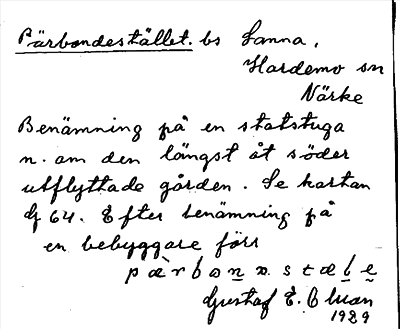 Pärbondestället. bs Sanna,
Hardemo sn
Närke
Benämning på en statstuga
n. om den längst åt söder
utflyttade gården. Se kartan
G 64. Efter benämning på
en bebyggare förr
Gustaf E. Olsson
1929